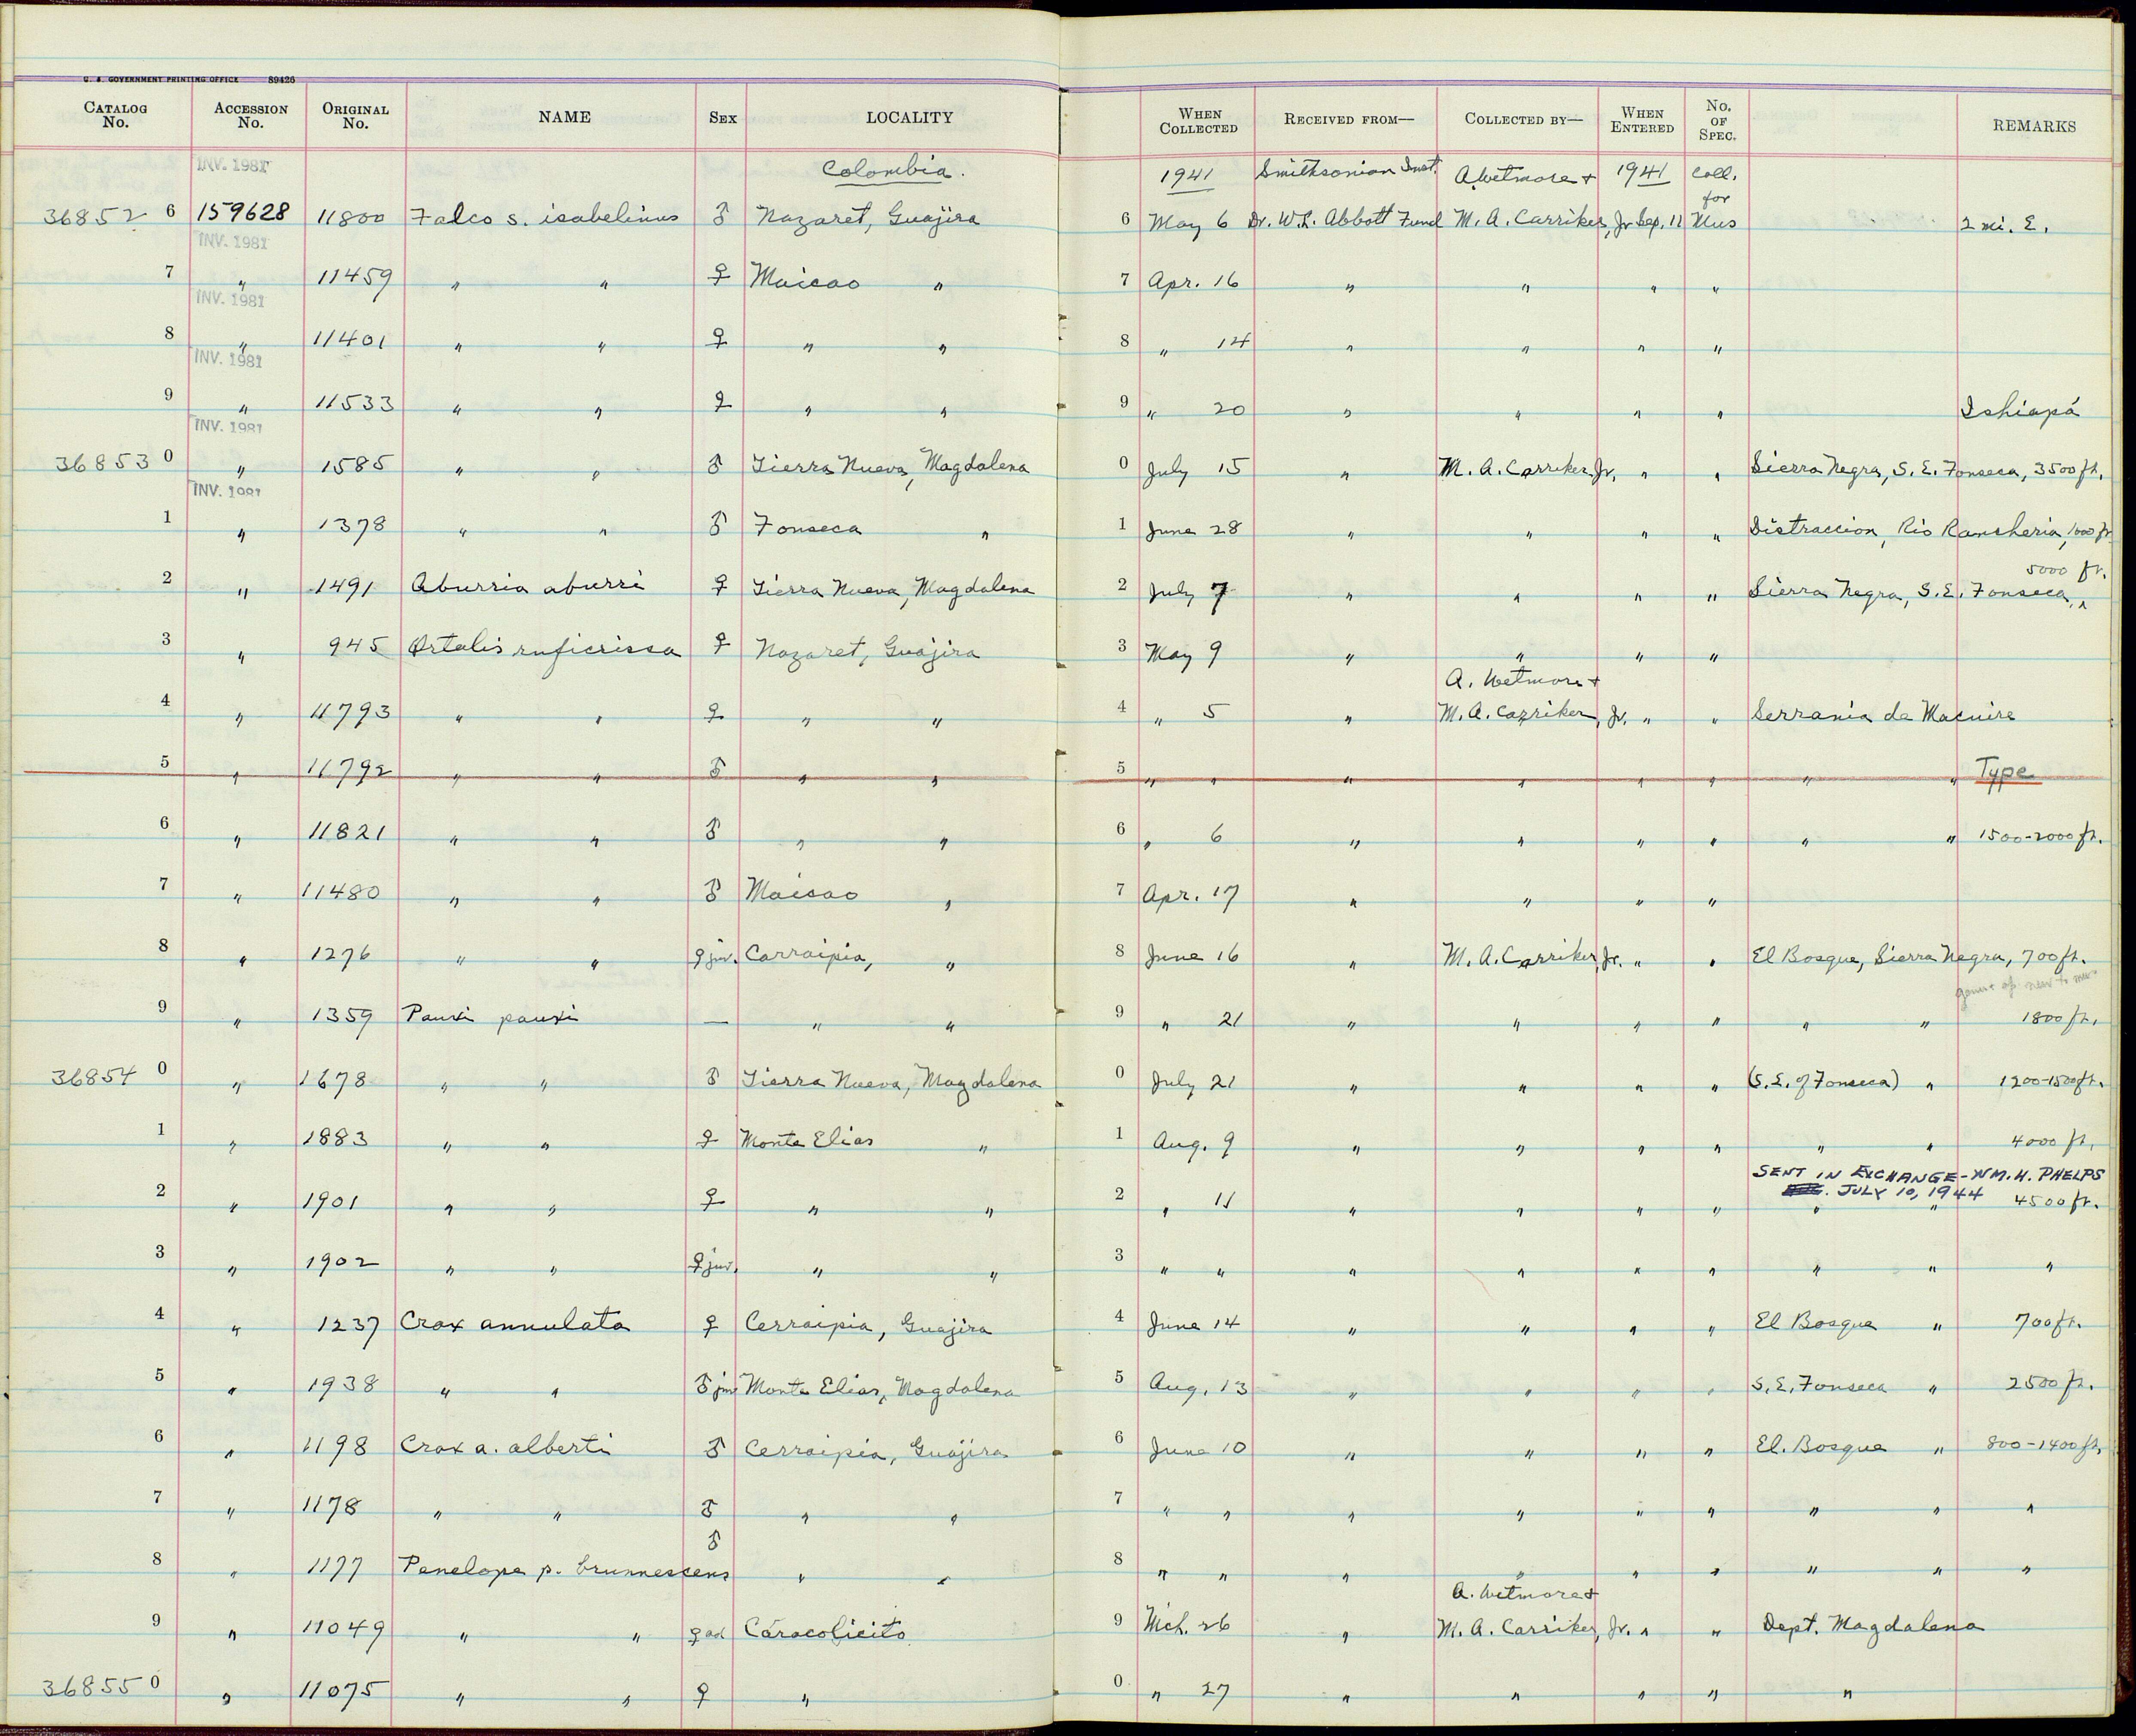 U. S. GOVERNMENT PRINTING OFFICE 89426
CATALOG No. ACCESSION No. ORIGINAL No. NAME SEX LOCALITY WHEN COLLECTED RECEIVED FROM— COLLECTED BY— WHEN ENTERED No. OF SPEC. REMARKS
INV. 1981 Colombia. 1941 Smithsonian Inst. A. Wetmore + 1941 Coll. for
36852 6 159628 11800 Falco s. isabelinus ♂ Nazaret, Guajira 6 May 6 Dr. W. L. Abbott Fund M. A. Carriker, Jr. Sep. 11 Mus 2 mi. E.
INV. 1981
7 " 11459 " " ♀ Maicao " 7 Apr. 16 " " " "
INV. 1981
8 " 11401 " " ♀ " " 8 " 14 " " " "
INV. 1981
9 " 11533 " " ♀ " " 9 " 20 " " " " Ishiapá
INV. 1981
36853 0 " 1585 " " ♂ Tierra Nueva, Magdalena 0 July 15 " M. A. Carriker, Jr. " " Sierra Negra, S. E. Fonseca, 3500 ft.
INV. 1981
1 " 1378 " " ♂ Fonseca " 1 June 28 " " " " Distraccion, Rio Rancheria, 1000 ft
5000 ft.
2 " 1491 Aburria aburri ♀ Tierra Nueva, Magdalena 2 July 7 " " " " Sierra Negra, S. E. Fonseca,
3 " 945 Ortalis ruficrissa ♀ Nazaret, Guajira 3 May 9 " " " "
A. Wetmore +
4 " 11793 " " ♀ " " 4 " 5 " M. A. Carriker, Jr. " " Serrania de Macuire
5 " 11792 " " ♂ " " 5 " " " " " " " " Type
6 " 11821 " " ♂ " " 6 " 6 " " " " " " 1500-2000 ft.
7 " 11480 " " ♂ Maicao " 7 Apr. 17 " " " "
8 " 1276 " " ♀ juv. Carraipia, " 8 June 16 " M. A. Carriker, Jr. " " El Bosque, Sierra Negra, 700 ft.
9 " 1359 Pauxi pauxi — " " 9 " 21 " " " " " " 1800 ft.
36854 0 " 1678 " " ♂ Tierra Nueva, Magdalena 0 July 21 " " " " (S. E. of Fonseca) " 1200-1500 ft.
1 " 1883 " " ♀ Monte Elias " 1 Aug. 9 " " " " " " 4000 ft.
SENT IN EXCHANGE - WM. H. PHELPS
JULY 10, 1944
2 " 1901 " " ♀ " " 2 " 11 " " " " " " 4500 ft.
3 " 1902 " " ♀ juv. " " 3 " " " " " " " " "
4 " 1237 Crax annulata ♀ Cerraipia, Guajira 4 June 14 " " " " El Bosque " 700 ft.
5 " 1938 " " ♂ juv Monte Elias, Magdalena 5 Aug. 13 " " " " S. E. Fonseca " 2500 ft.
6 " 1198 Crax a. alberti ♂ Cerraipia, Guajira 6 June 10 " " " " El. Bosque " 800-1400 ft.
7 " 1178 " " ♂ " " 7 " " " " " " " " "
8 " 1177 Penelope p. brunnescens ♂ " " 8 " " " " " " " " "
A. Wetmore +
9 " 11049 " " ♀ ad Caracolicito 9 Mch. 26 " M. A. Carriker, Jr. " " Dept. Magdalena
36855 0 " 11075 " " ♀ " 0 " 27 " " " " "